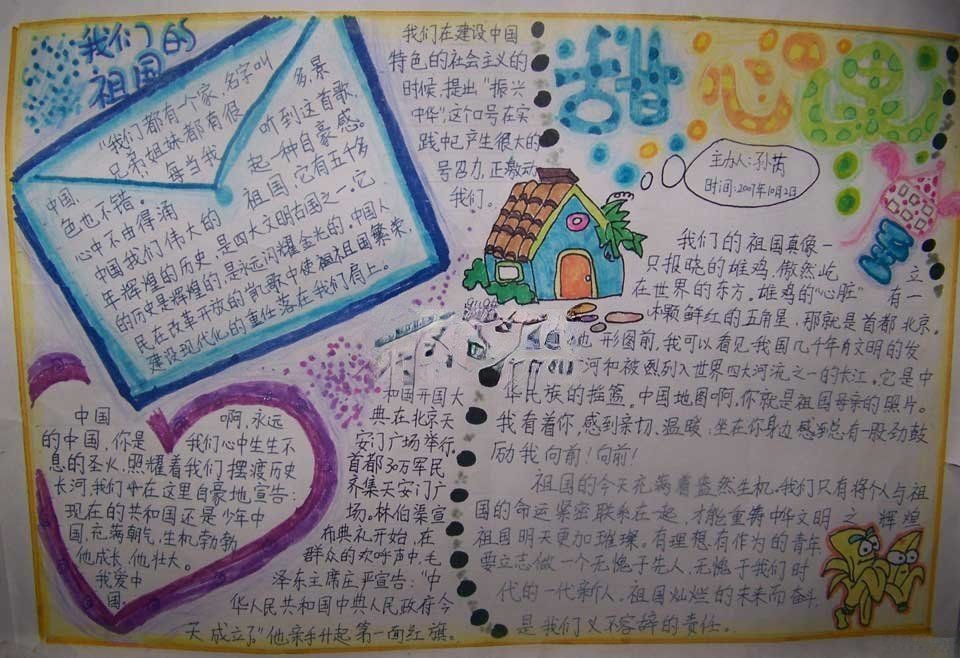 我们的
祖国
"我们都有一个家,名字叫
中国,兄弟姐妹都有很多,景
色也不错。"每当我听到这首歌,
心中不由得涌起一种自豪感。
中国我们伟大的祖国,它有五千多
年辉煌的历史,是四大文明古国之一,它
的历史是辉煌的,是永远闪耀金光的。中国人
民在改革开放的凯歌中使祖国繁荣,
建设现代化的重任落在我们肩上。
我们在建设中国
特色的社会主义的
时候,提出"振兴
中华",这个口号在实
践中已产生很大的
号召力,正激动
我们。
甜心屋
主办人:孙芮
时间:2007年10月2日
我们的祖国真像一
只报晓的雄鸡,傲然屹立
在世界的东方。雄鸡的"心脏"有一
颗鲜红的五角星,那就是首都北京。
地形图前,我可以看见我国几千年有文明的发
河和被列入世界四大河流之一的长江。它是中
华民族的摇篮。中国地图啊,你就是祖国母亲的照片。
我看着你,感到亲切、温暖,坐在你身边感到总有一股劲鼓
励我向前!向前!
祖国的今天充满着盎然生机。我们只有将个人与祖
国的命运紧密联系在一起,才能重铸中华文明之辉煌
祖国明天更加璀璨。有理想有作为的青年
要立志做一个无愧于先人,无愧于我们时
代的一代新人。祖国灿烂的未来而奋斗
是我们义不容辞的责任。
中国啊,永远
的中国,你是我们心中生生不
息的圣火,照耀着我们摆渡历史
长河,我们在这里自豪地宣告:
现在的共和国还是少年中
国,充满朝气,生机勃勃
他成长,他壮大。
我爱中
国。
和国开国大
典在北京天
安门广场举行。
首都30万军民
齐集天安门广
场。林伯渠宣
布典礼开始,在
群众的欢呼声中,毛
泽东主席庄严宣告:"中
华人民共和国中央人民政府今
天成立了"他亲手升起第一面红旗。